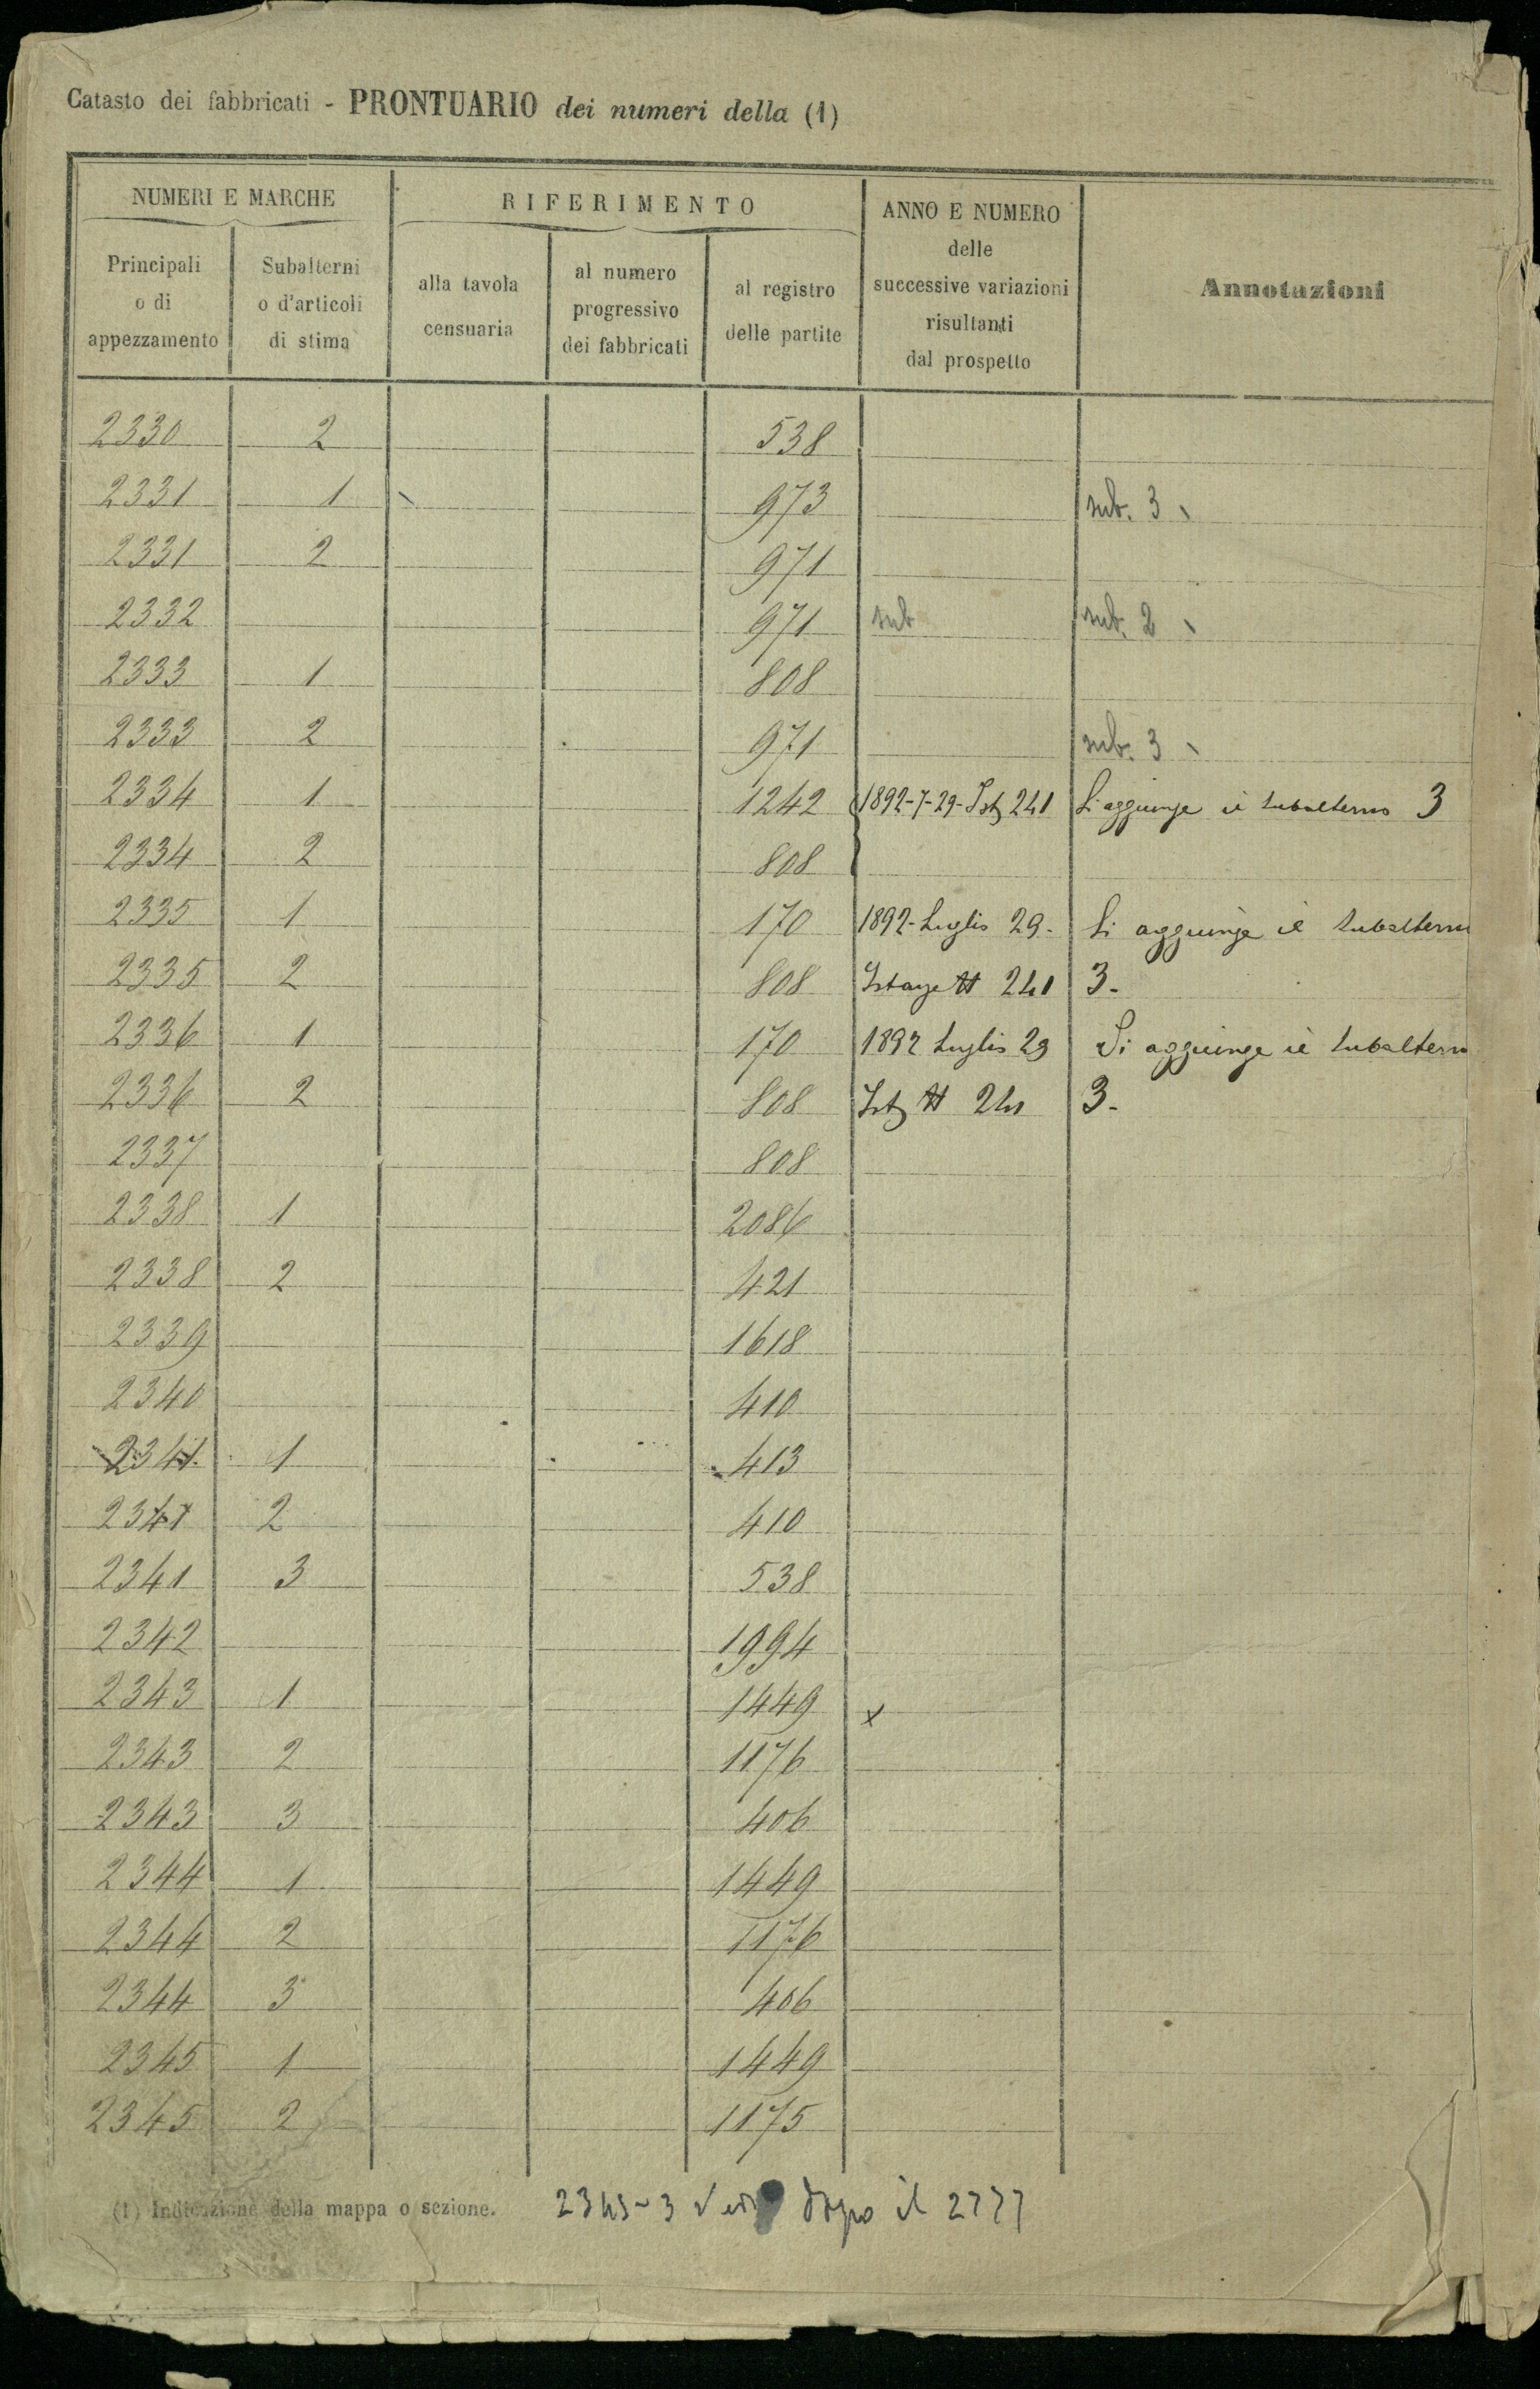 Catasto dei fabbricati - PRONTUARIO dei numeri della (1)
NUMERI E MARCHE
RIFERIMENTO
ANNO E NUMERO
delle
successive variazioni
risultanti
dal prospetto
Annotazioni
Principali
o di
appezzamento
Subalterni
o d'articoli
di stima
alla tavola
censuaria
al numero
progressivo
dei fabbricati
al registro
delle partite
2330 2 538
2331 1 973 sub. 3
2331 2 971
2332 971 sub sub. 2
2333 1 808
2333 2 971 sub. 3
2334 1 1242 1892-7-29- 241 Si aggiunge il subalterno 3
2334 2 808
2335 1 170 1892-Luglio 29- Si aggiunge il subalterno
2335 2 808 241 3-
2336 1 170 1892 Luglio 29 Si aggiunge il subalterno
2336 2 808 241 3-
2337 808
2338 1 2086
2338 2 421
2339 1618
2340 410
2341 1 413
2341 2 410
2341 3 538
2342 1994
2343 1 1449 x
2343 2 1176
2343 3 406
2344 1 1449
2344 2 1176
2344 3 406
2345 1 1449
2345 2 1175
(1) Indicazione della mappa o sezione.
2345-3 dopo il 2777